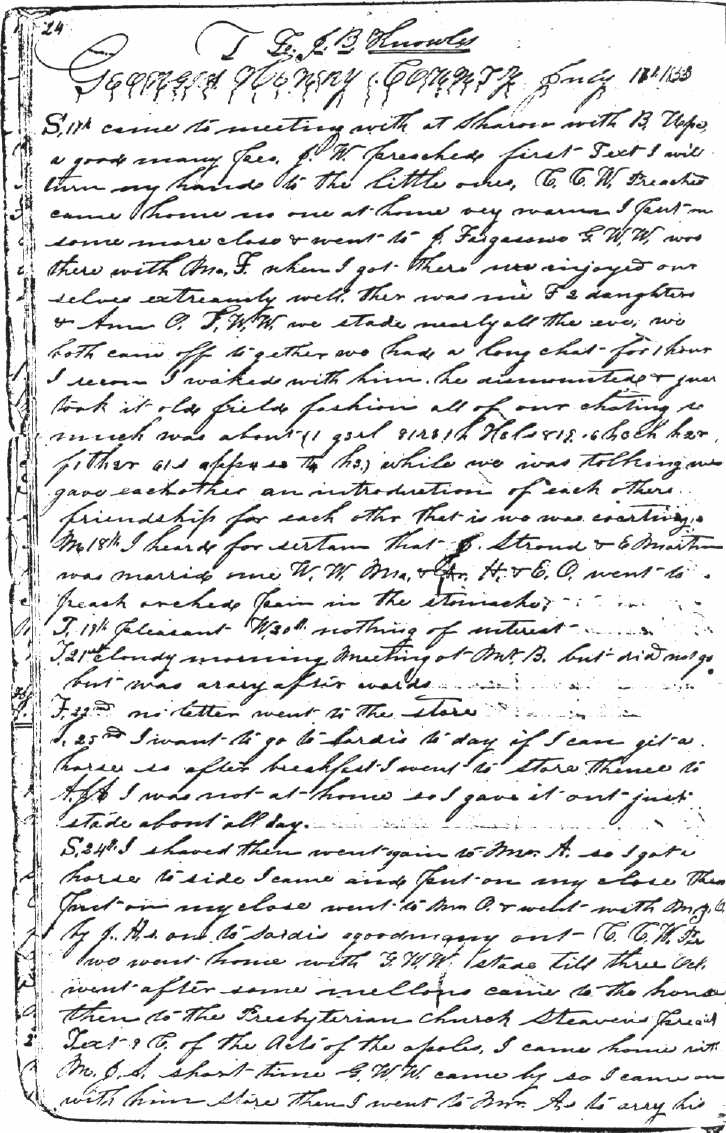 24
T G. J. B Knowles
Georgia Henry County July 18th 1853
S. 17th came to meeting with at Sharon with B,
a good many J. W. preached first Text I will
turn my hands to the little ones, C. C. W. Preached
came home no one at home very warm I put on
some more close & went to J. Fargasons G. W. W. was
there with Ma, F. when I got there we injoyed our
selves extreamly well. ther was me F 2 daughters
& Ann O. P. W. W. we stade nearly all the eve, we
both came off together we had a long chat for 1 hour
I recon I waked with him. he dismounted & just
took it old field fashion all of our chating so
much was about
while we was tolking we
gave eachother an introduction of each others
friendship for each othr that is we was corting,
M, 18th I heard for sertain that J. Stroud & E Martin
was married W. W. Ma, & H. & E. O. went to
preach orched pain in the stomache,
T, 19th pleasant W, 20th nothing of interest
T, 21st cloudy morning Meeting at Mt. B. but did not go
but was arary after wards
F. 22nd no letter went to the store
S. 23rd I want to go to Sardis to day if I can git a
horse so after breakfast I went to store thence to
I was not at home so I gave it out just
stade about all day.
S. 24th. I shaved then went again to Mr. A. so I got a
horse to side I came and put on my close then
Put on my close went to Mr O. & went with
by J. H.s on to Sardis agoodmany out C. C. W. Pre
we went home with G. W. W. stade till three Oclk
went after some mellons came to the house
then to the Presbyterian Church Steavens preach
Text 2 C. of the Acts of the apoles, I came home with
M. J. S. short time G. W. W. came by so I came on
with him store then I went to Mr. As to cary his